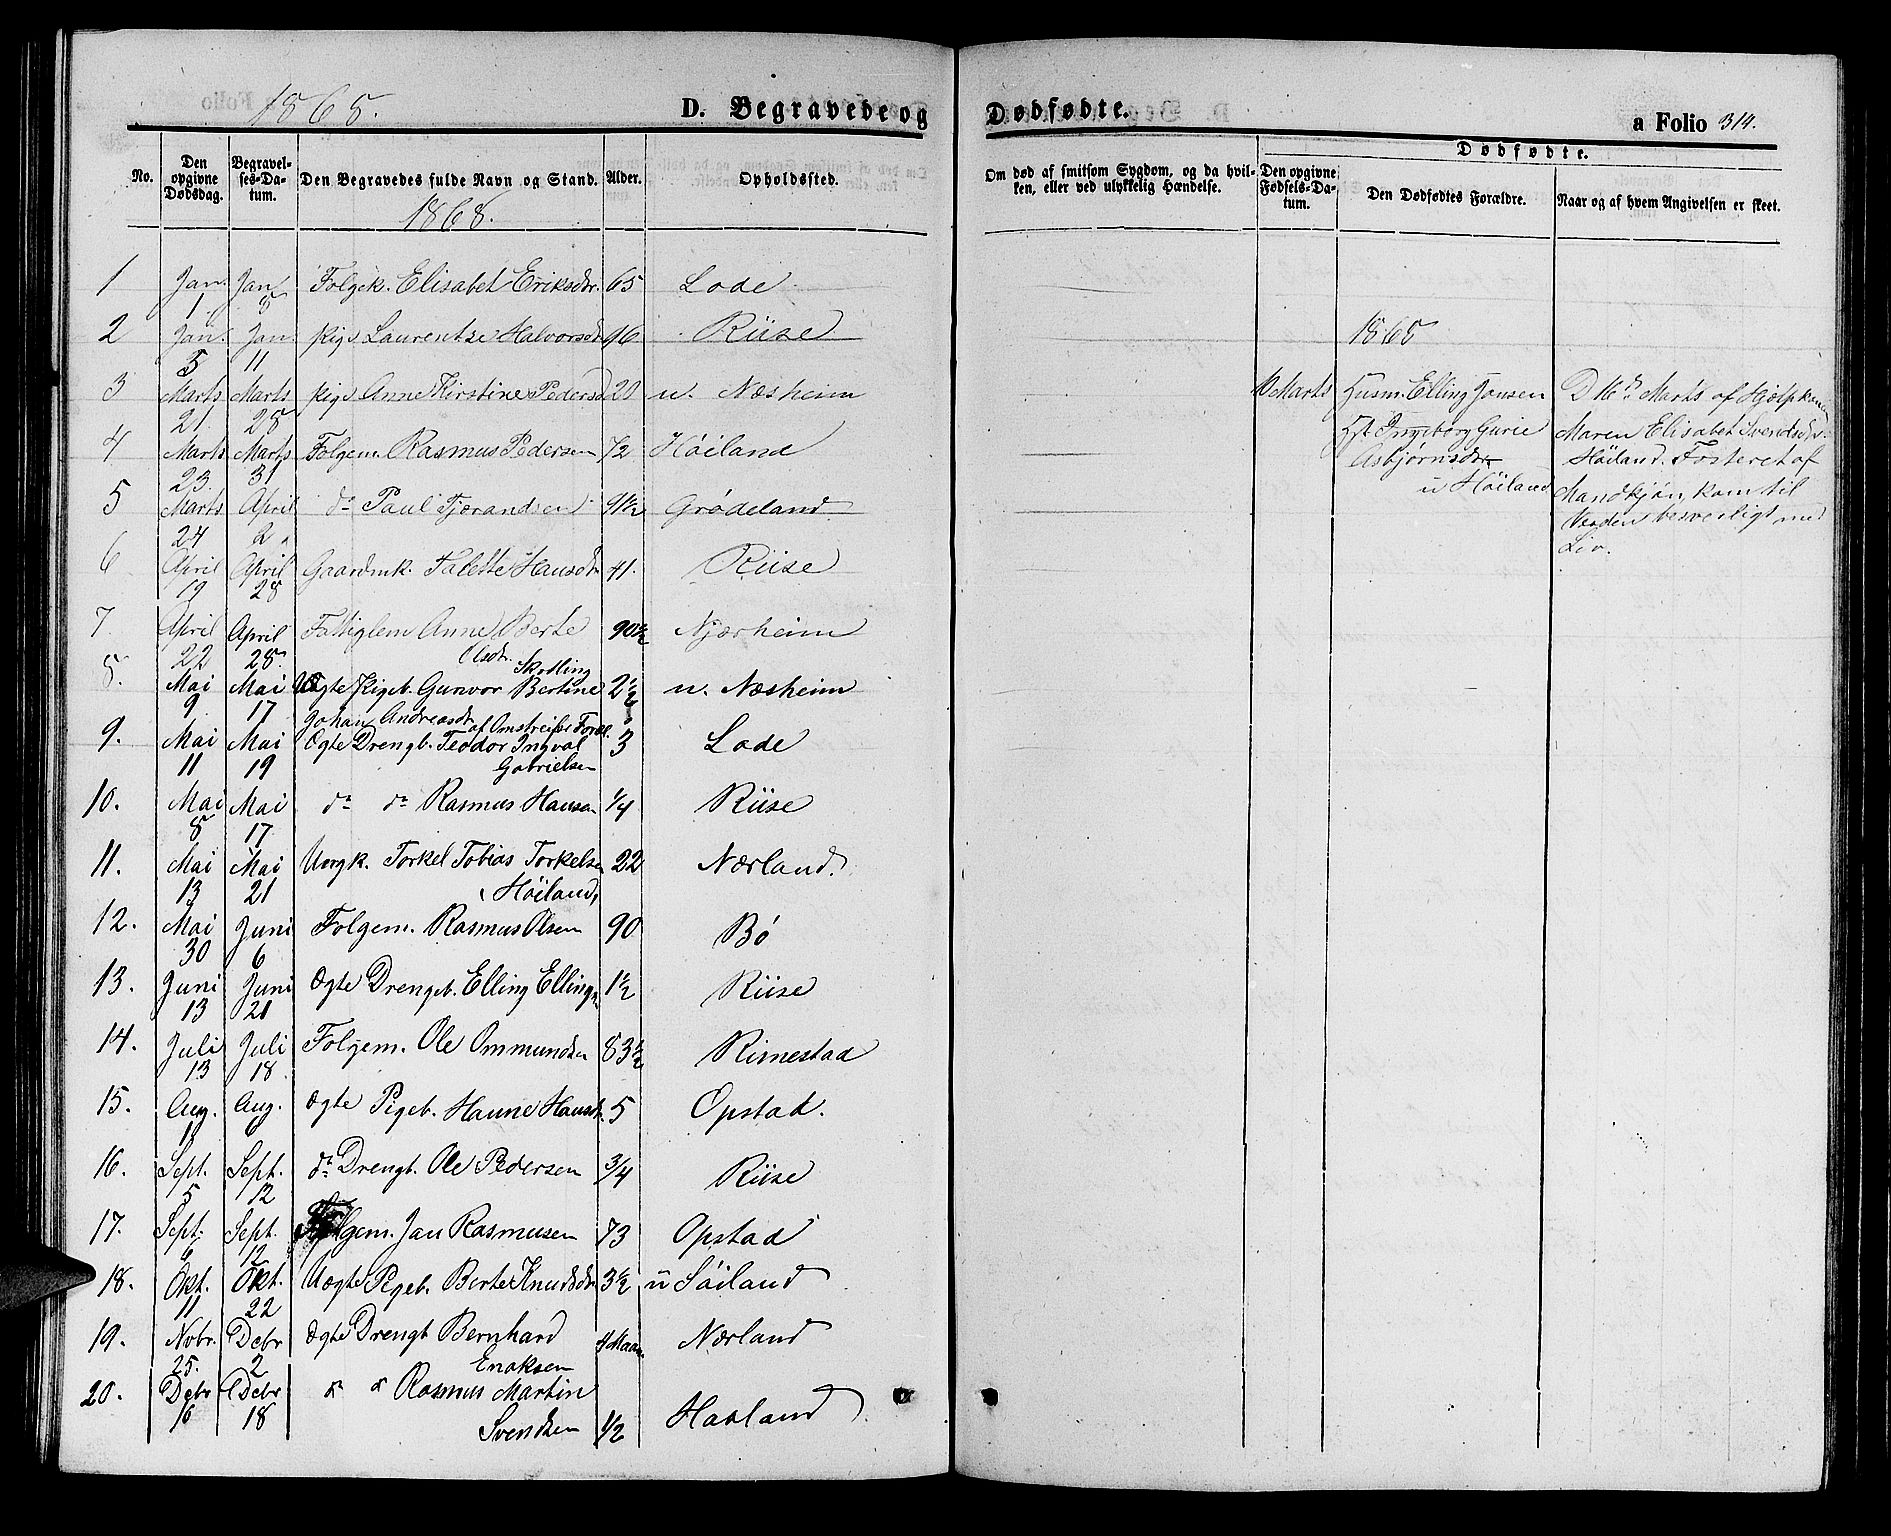 1868.
D. Begravede og Dødfødte.
a Folio 314.
No. Den opgivne Dødsdag. Begravelses-Datum. Den Begravedes fulde Navn og Stand. Alder. Opholdssted.
Om død af smitsom Sygdom, og da hvilken, eller ved ulykkelig Hændelse.
Dødfødte.
Den opgivne Fødsels-Datum. Den Dødfødtes Forældre. Naar og af hvem Angivelsen er skeet.
1868.
1 Jan. 1 Jan 8 Folgek. Elisabet Eriksdr. 65 Lode
2 Jan. 5 Jan. 11 pige Laurentse Halvorsdr 46 Riise
3 Marts 21. Marts 28 pige Anne Kirstine Pedersd 20 u. Næsheim
4 Marts 23. Marts 31 Folgem. Rasmus Pedersen 72 Høiland
5 Marts 24 April 2. do Paul Tjørandsen 91½ Grødeland
6 April 19 April 28 Gaardmk. Talette Hansdr 41. Riise
7. April 22 April 28. Fattiglem Anne Berte 90½ Njærheim
Olsdr. Skotling
8. Mai 9 Mai 17 Uægte Pigeb. Gunvor Bertine 2½ u. Næsheim
Johan Andreasdr
af Omstreifer Foræl.
9. Mai 11 Mai 19 Ægte Drengb. Teodor Ingval 3 Lode
Gabrielsen
10. Mai 8 Mai 17 do do Rasmus Hansen ¼ Riise
11. Mai 13 Mai 21 Ungk. Torkel Tobias Torkelsen 22 Nærland.
Høiland,
12. Mai 30 Juni 6 Folgem. Rasmus Olsen 90 Bø
13. Juni 13 Juni 21 Ægte Drengeb. Elling Ellings 1½ Riise
14. Juli 13 Juli 18. Folgem. Ole Ommundsen 83½ Rimestad
15. Aug. 1 Aug. 6 Ægte Pigeb. Hanne Hansdr. 5 Opstad.
16. Sept. 5 Sept. 12 do Drengb. Ole Pedersen ¾ Riise
17. Sept. 6 Sept. 12 Folgem. Jan Rasmusen 73 Opstad
18. Okt. 11 Okt. 22 Uægte Pigeb. Berte Knudsdr 3½ u Søiland
19. Novbr. 25. Debr 2 Ægte Drengb Bernhard 4 Maan. Nærland
Enoksen
20. Debr 16 Debr 18 do do Rasmus Martin
Svendsen ½ Haaland
1868
10 Marts Husm. Elling Jansen
Hst. Ingeborg Gurie
Asbjørnsdr
u Høiland
D 16de Marts af Hjelpkonen
Maren Elisabet Svendsdr.
Høiland. Fosteret af
Mandkjøn, kom til
Verden besverligt med
Liv.